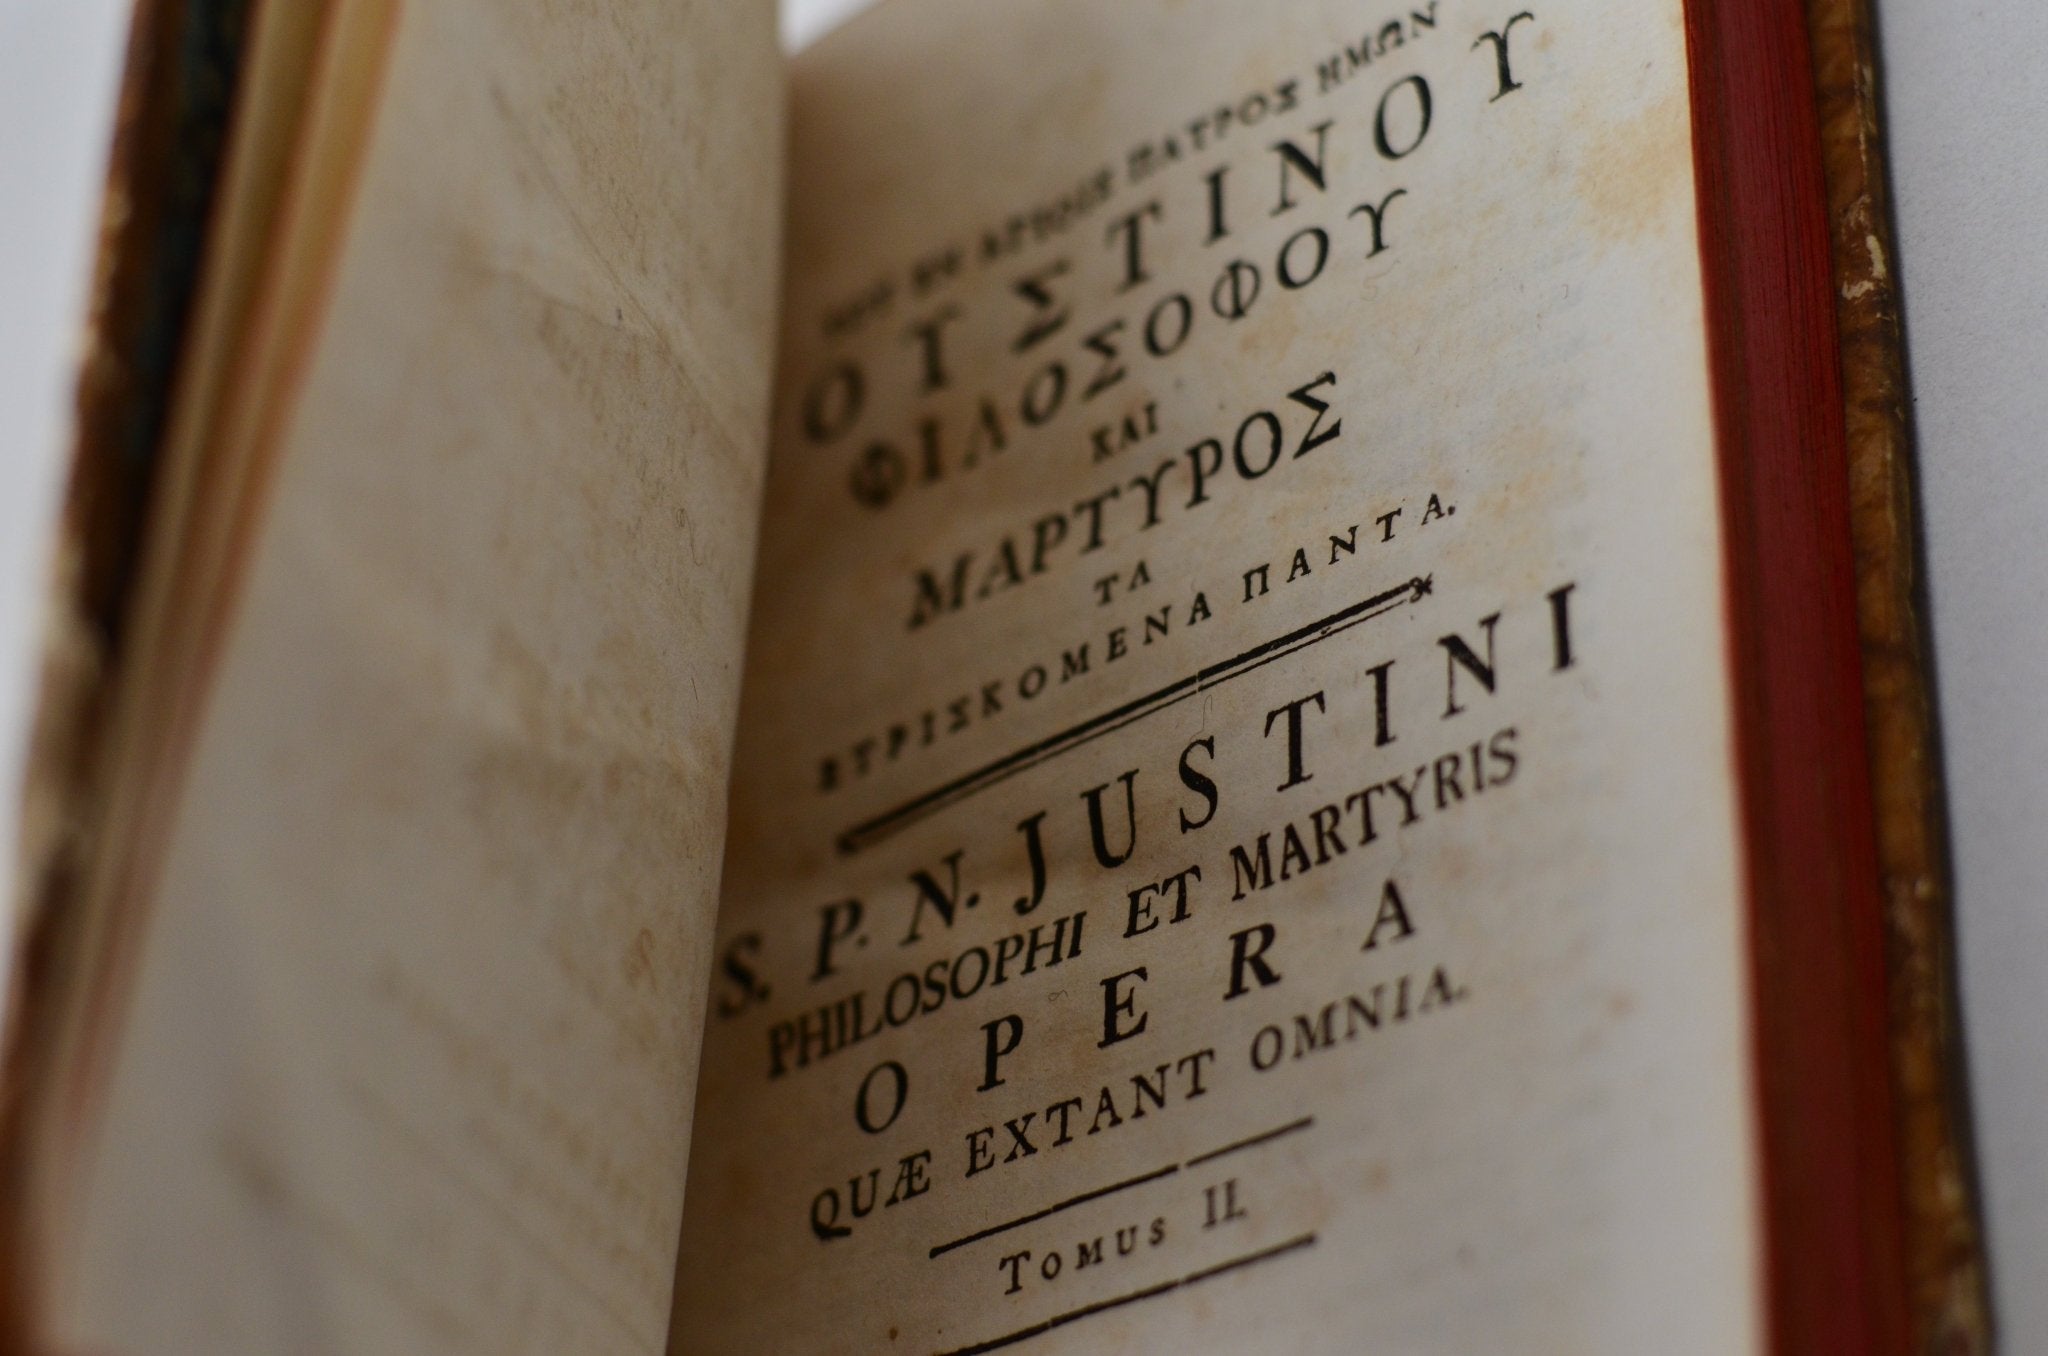 ΑΓΙΟΥ ΠΑΤΡΟΣ ΗΜΩΝ
ΟΥΣΤΙΝΟΥ
ΦΙΛΟΣΟΦΟΥ
ΚΑΙ
ΜΑΡΤΥΡΟΣ
ΤΑ
ΕΥΡΙΣΚΟΜΕΝΑ ΠΑΝΤΑ.
S. P. N. JUSTINI
PHILOSOPHI ET MARTYRIS
OPERA
QUÆ EXTANT OMNIA.
TOMUS II.